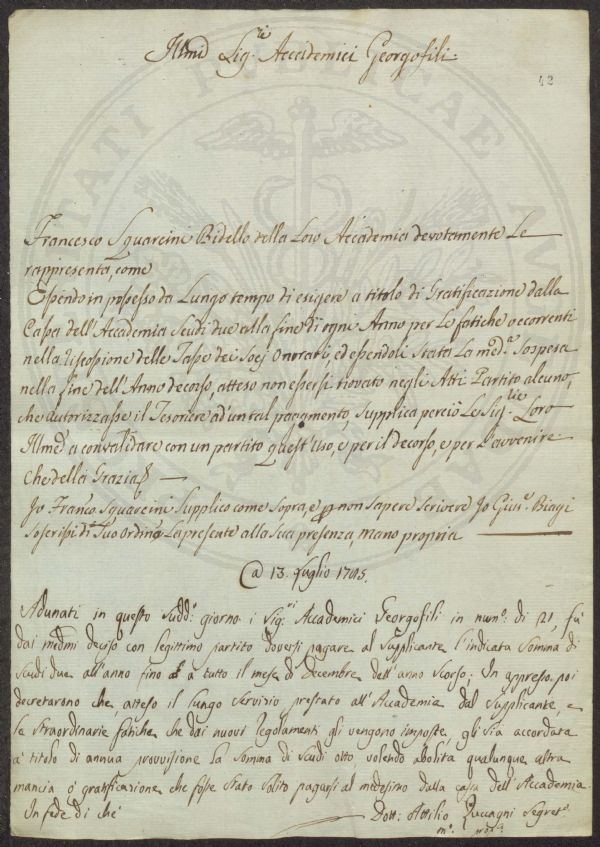 Illmi Sig.rie Accademici Georgofili.
42
Francesco Squarcini Bidello della Loro Accademia devotamente Le
rappresenta, come
Essendo in possesso da Lungo tempo di esigere a titolo di Gratificazione dalla
Cassa dell'Accademia Scudi due alla fine di ogni Anno per Le fatiche occorrenti
nella riscossione delle Tasse dei Socj Onorari, ed essendoli stata La med.a sospesa
nella fine dell'Anno decorso, atteso non essersi trovato negli Atti Partito alcuno,
che autorizzasse il Tesoriere ad'un tal pagamento, supplica perciò Le Sig.rie Loro
Illme a convalidare con un partito quest'uso, e per il decorso, e per L'avvenire
Che della Grazia
Io Franco Squarcini Supplico come sopra, e p non sapere scrivere Io Gius.e Biagi
soscrissi di Suo Ordine La presente alla sua presenza, mano propria
@ 13. Luglio 1785.
Adunati in questo sudd.o giorno i Sig.ri Accademici Georgofili in num.o di 21, fù
dai medmi deciso con legittimo partito doversi pagare al supplicante l'indicata somma di
scudi due all'anno fino a tutto il mese di Decembre dell'anno scorso; In appresso poi
decretarono che, atteso il lungo servizio prestato all'Accademia dal supplicante, e
le straordinarie fatiche che dai nuovi regolamenti gli vengono imposte, gli sia accordata
a titolo di annua provvisione la somma di scudi otto, volendo abolita qualunque altra
mancia o gratificazione che fosse stato solito pagarsi al medesimo dalla cassa dell'Accademia.
In fede di che
Dott: Attilio Zuccagni Segret.o
m.o prop.a